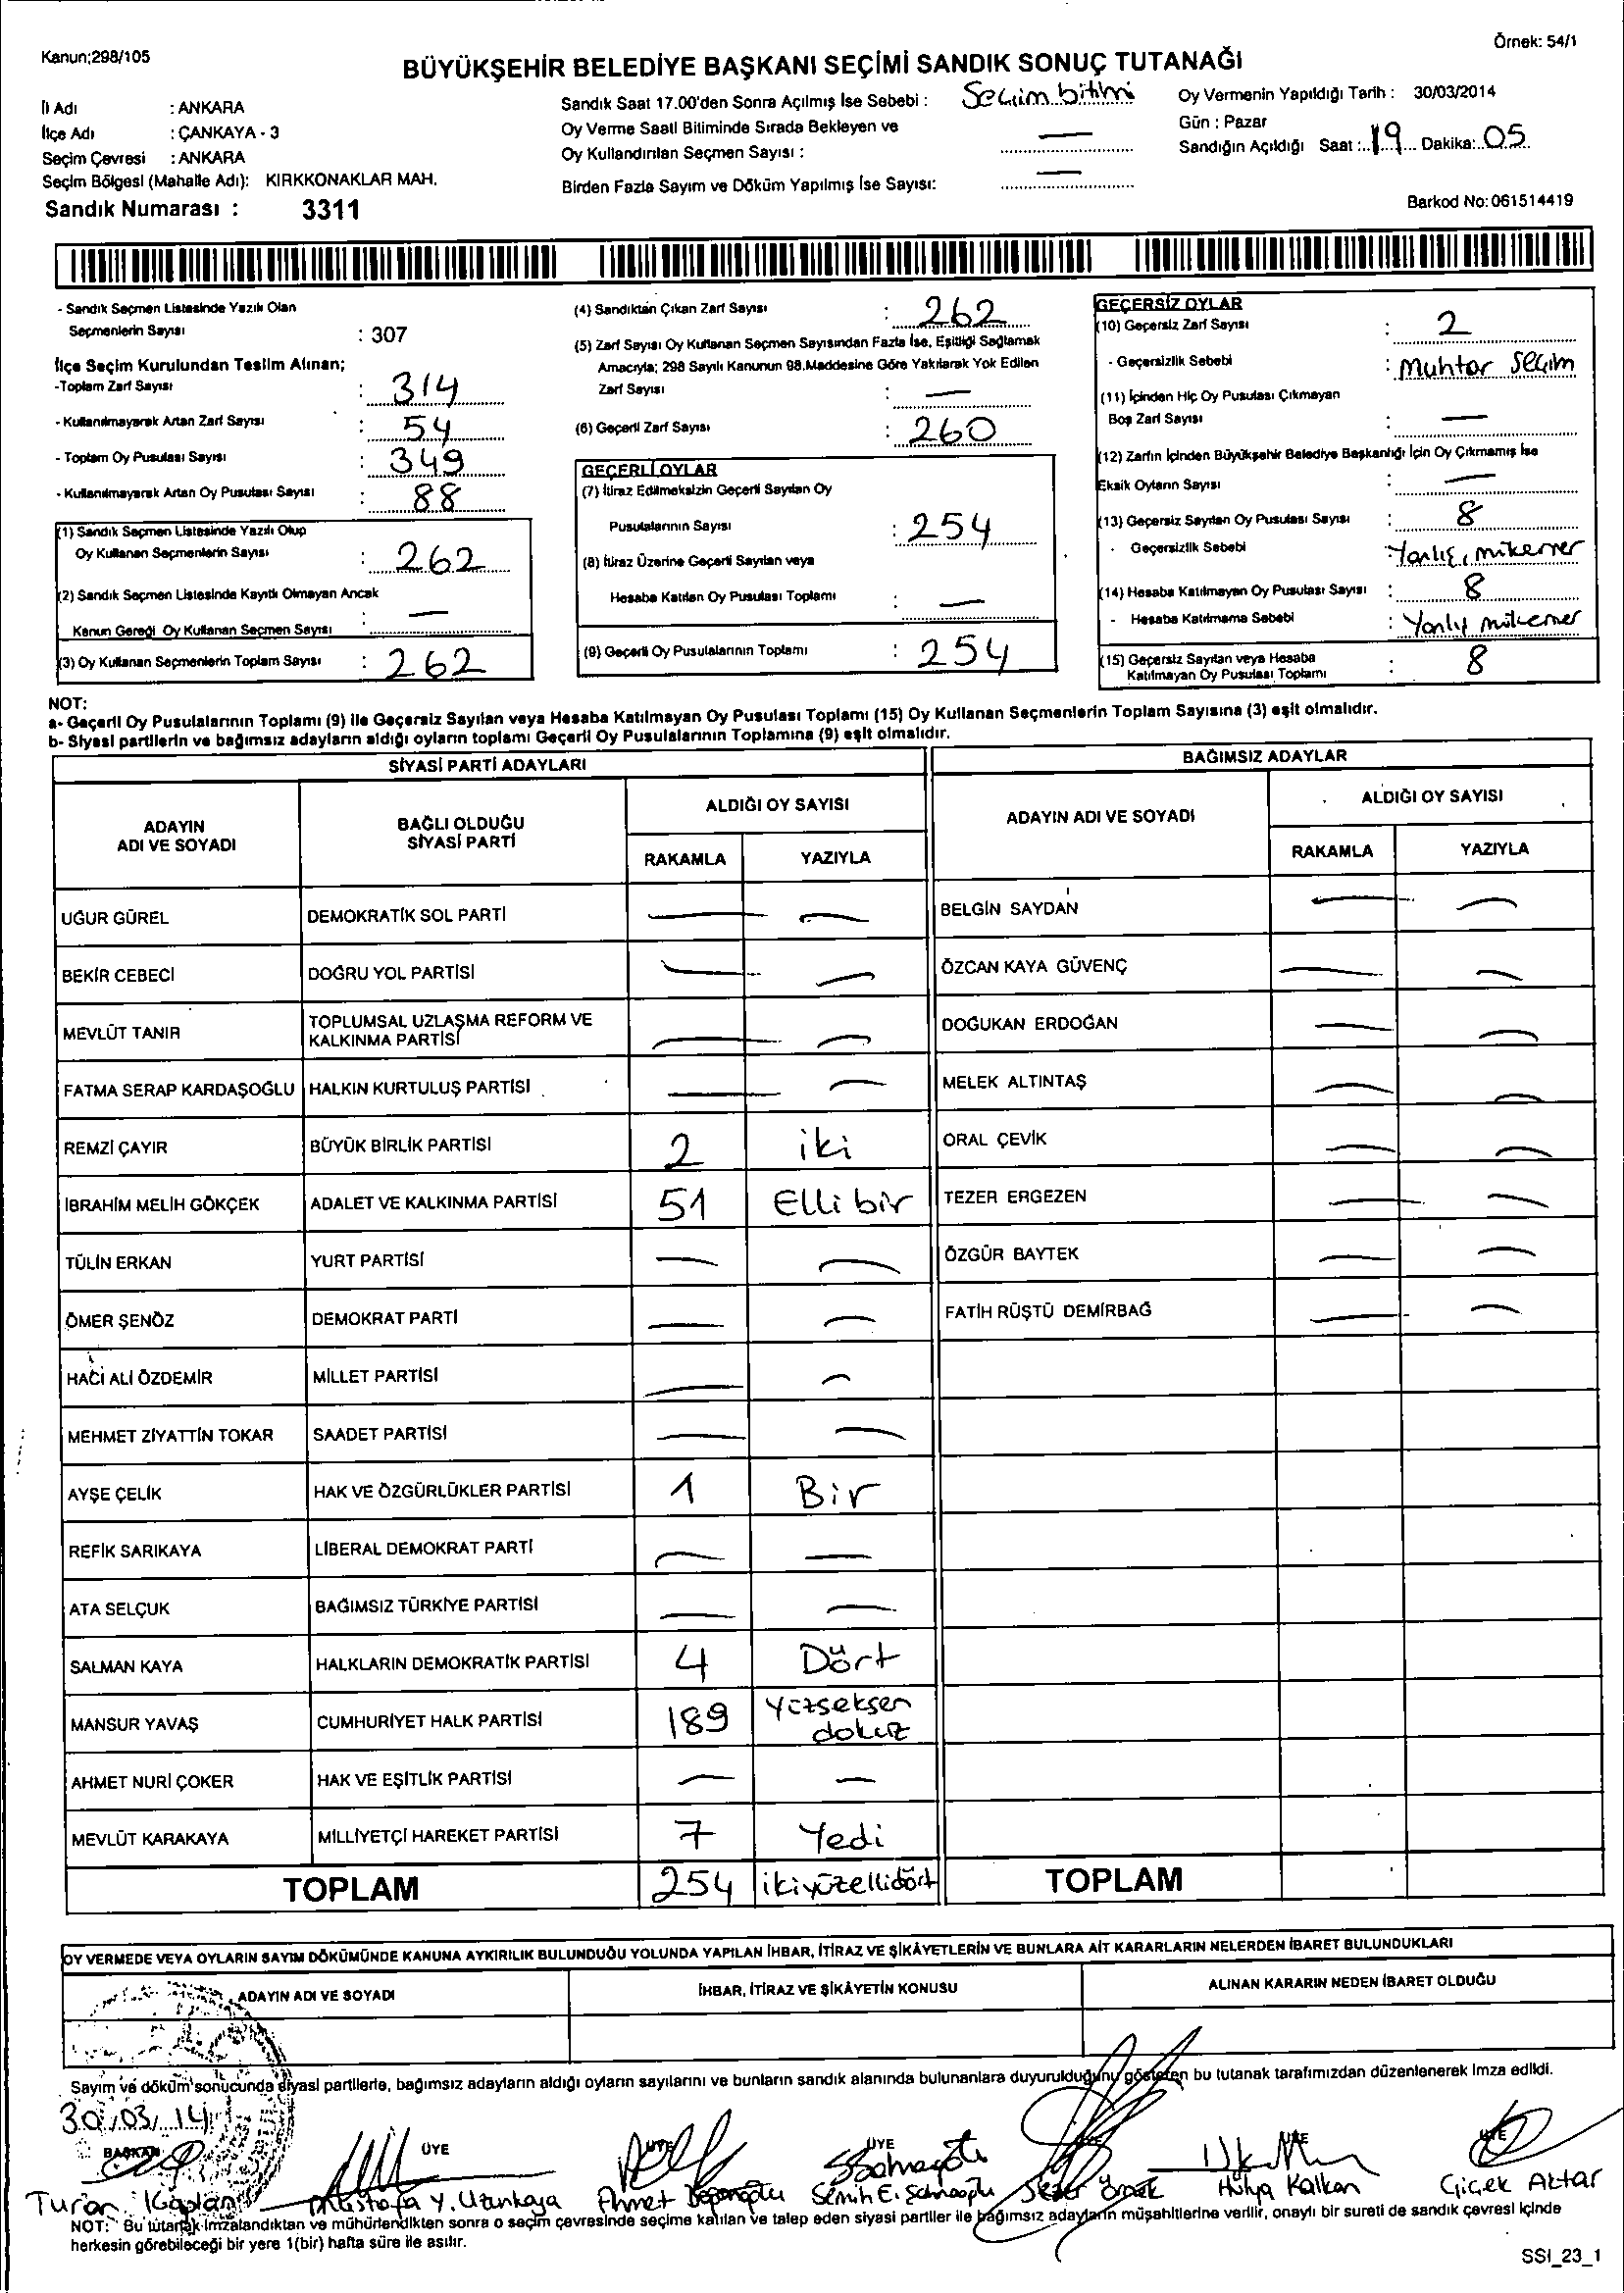 Kanun;298/105
Örnek: 54/1
BÜYÜKŞEHİR BELEDİYE BAŞKANI SEÇİMİ SANDIK SONUÇ TUTANAĞI
İl Adı : ANKARA
İlçe Adı : ÇANKAYA - 3
Seçim Çevresi : ANKARA
Seçim Bölgesi (Mahalle Adı): KIRKKONAKLAR MAH.
Sandık Numarası : 3311
Sandık Saat 17.00'den Sonra Açılmış İse Sebebi : Seçim bitimi
Oy Verme Saati Bitiminde Sırada Bekleyen ve
Oy Kullandırılan Seçmen Sayısı : —
Birden Fazla Sayım ve Döküm Yapılmış İse Sayısı: —
Oy Vermenin Yapıldığı Tarih : 30/03/2014
Gün : Pazar
Sandığın Açıldığı Saat : 19 Dakika: 05
Barkod No: 061514419
- Sandık Seçmen Listesinde Yazılı Olan
Seçmenlerin Sayısı : 307
İlçe Seçim Kurulundan Teslim Alınan;
-Toplam Zarf Sayısı : 314
- Kullanılmayarak Artan Zarf Sayısı : 54
- Toplam Oy Pusulası Sayısı : 349
- Kullanılmayarak Artan Oy Pusulası Sayısı : 88
(1) Sandık Seçmen Listesinde Yazılı Olup
Oy Kullanan Seçmenlerin Sayısı : 262
(2) Sandık Seçmen Listesinde Kayıtlı Olmayan Ancak
Kanun Gereği Oy Kullanan Seçmen Sayısı : —
(3) Oy Kullanan Seçmenlerin Toplam Sayısı : 262
(4) Sandıktan Çıkan Zarf Sayısı : 262
(5) Zarf Sayısı Oy Kullanan Seçmen Sayısından Fazla İse, Eşitliği Sağlamak
Amacıyla; 298 Sayılı Kanunun 98.Maddesine Göre Yakılarak Yok Edilen
Zarf Sayısı : —
(6) Geçerli Zarf Sayısı : 260
GEÇERLİ OYLAR
(7) İtiraz Edilmeksizin Geçerli Sayılan Oy
Pusulalarının Sayısı : 254
(8) İtiraz Üzerine Geçerli Sayılan veya
Hesaba Katılan Oy Pusulası Toplamı : —
(9) Geçerli Oy Pusulalarının Toplamı : 254
GEÇERSİZ OYLAR
(10) Geçersiz Zarf Sayısı : 2
- Geçersizlik Sebebi : Muhtar seçim
(11) İçinden Hiç Oy Pusulası Çıkmayan
Boş Zarf Sayısı : —
(12) Zarfın İçinden Büyükşehir Belediye Başkanlığı İçin Oy Çıkmamış İse
Eksik Oyların Sayısı : —
(13) Geçersiz Sayılan Oy Pusulası Sayısı : 8
- Geçersizlik Sebebi : Yanlış, mükerrer
(14) Hesaba Katılmayan Oy Pusulası Sayısı : 8
- Hesaba Katılmama Sebebi : Yanlış mükerrer
(15) Geçersiz Sayılan veya Hesaba
Katılmayan Oy Pusulası Toplamı : 8
NOT:
a- Geçerli Oy Pusulalarının Toplamı (9) ile Geçersiz Sayılan veya Hesaba Katılmayan Oy Pusulası Toplamı (15) Oy Kullanan Seçmenlerin Toplam Sayısına (3) eşit olmalıdır.
b- Siyasi partilerin ve bağımsız adayların aldığı oyların toplamı Geçerli Oy Pusulalarının Toplamına (9) eşit olmalıdır.
SİYASİ PARTİ ADAYLARI
ADAYIN
ADI VE SOYADI
BAĞLI OLDUĞU
SİYASİ PARTİ
ALDIĞI OY SAYISI
RAKAMLA YAZIYLA
UĞUR GÜREL DEMOKRATİK SOL PARTİ — —
BEKİR CEBECİ DOĞRU YOL PARTİSİ — —
MEVLÜT TANIR TOPLUMSAL UZLAŞMA REFORM VE
KALKINMA PARTİSİ — —
FATMA SERAP KARDAŞOĞLU HALKIN KURTULUŞ PARTİSİ — —
REMZİ ÇAYIR BÜYÜK BİRLİK PARTİSİ 2 iki
İBRAHİM MELİH GÖKÇEK ADALET VE KALKINMA PARTİSİ 51 Elli bir
TÜLİN ERKAN YURT PARTİSİ — —
ÖMER ŞENÖZ DEMOKRAT PARTİ — —
HACI ALİ ÖZDEMİR MİLLET PARTİSİ — —
MEHMET ZİYATTİN TOKAR SAADET PARTİSİ — —
AYŞE ÇELİK HAK VE ÖZGÜRLÜKLER PARTİSİ 1 Bir
REFİK SARIKAYA LİBERAL DEMOKRAT PARTİ — —
ATA SELÇUK BAĞIMSIZ TÜRKİYE PARTİSİ — —
SALMAN KAYA HALKLARIN DEMOKRATİK PARTİSİ 4 Dört
MANSUR YAVAŞ CUMHURİYET HALK PARTİSİ 189 Yüzseksen
dokuz
AHMET NURİ ÇOKER HAK VE EŞİTLİK PARTİSİ — —
MEVLÜT KARAKAYA MİLLİYETÇİ HAREKET PARTİSİ 7 Yedi
TOPLAM 254 ikiyüzellidört
BAĞIMSIZ ADAYLAR
ADAYIN ADI VE SOYADI
ALDIĞI OY SAYISI
RAKAMLA YAZIYLA
BELGİN SAYDAN — —
ÖZCAN KAYA GÜVENÇ — —
DOĞUKAN ERDOĞAN — —
MELEK ALTINTAŞ — —
ORAL ÇEVİK — —
TEZER ERGEZEN — —
ÖZGÜR BAYTEK — —
FATİH RÜŞTÜ DEMİRBAĞ — —
TOPLAM
OY VERMEDE VEYA OYLARIN SAYIM DÖKÜMÜNDE KANUNA AYKIRILIK BULUNDUĞU YOLUNDA YAPILAN İHBAR, İTİRAZ VE ŞİKÂYETLERİN VE BUNLARA AİT KARARLARIN NELERDEN İBARET BULUNDUKLARI
ADAYIN ADI VE SOYADI
İHBAR, İTİRAZ VE ŞİKÂYETİN KONUSU
ALINAN KARARIN NEDEN İBARET OLDUĞU
Sayım ve döküm sonucunda siyasi partilerle, bağımsız adayların aldığı oyların sayılarını ve bunların sandık alanında bulunanlara duyurulduğunu gösteren bu tutanak tarafımızdan düzenlenerek imza edildi.
30/03/14
BAŞKAN ÜYE ÜYE ÜYE ÜYE ÜYE
Turan Kaplan Mustafa Y. Uzunkaya Ahmet Semih E. Örnek Hülya Kalkan Çiçek Aktar
NOT: Bu tutanak imzalandıktan ve mühürlendikten sonra o seçim çevresinde seçime katılan ve talep eden siyasi partiler ile bağımsız adayların müşahitlerine verilir, onaylı bir sureti de sandık çevresi içinde
herkesin görebileceği bir yere 1(bir) hafta süre ile asılır.
SSI_23_1